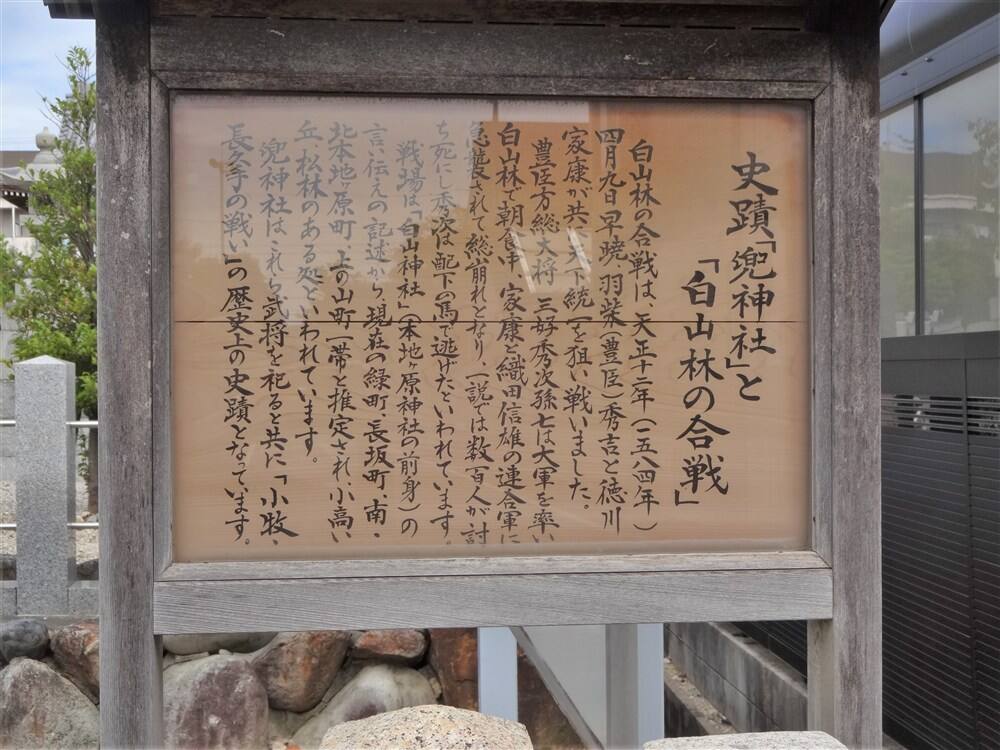 史蹟「兜神社」と
「白山林の合戦」
白山林の合戦は、天正十二年(一五八四年)
四月九日早暁、羽柴(豊臣)秀吉と徳川
家康が共に天下統一を狙い戦いました。
豊臣方総大将 三好秀次孫七は大軍を率い
白山林で朝食中、家康と織田信雄の連合軍に
急襲されて総崩れとなり、一説では数百人が討
ち死にし秀次は配下の馬で逃げたといわれています。
戦場は「白山神社」(本地ヶ原神社の前身)の
言い伝えの記述から、現在の緑町、長坂町、南・
北本地原町、上の山町一帯と推定され小高い
丘、松林のある処といわれています。
兜神社はこれら武将を祀ると共に「小牧・
長久手の戦い」の歴史上の史蹟となっています。